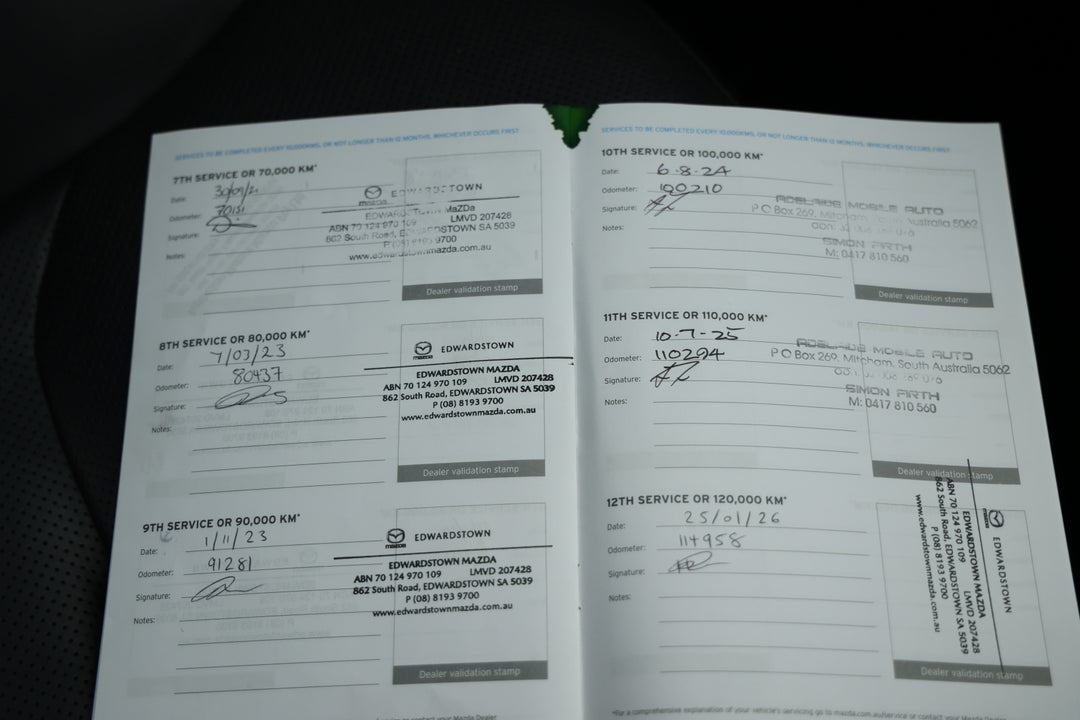 SERVICES TO BE COMPLETED EVERY 10,000KMS, OR NOT LONGER THAN 12 MONTHS, WHICHEVER OCCURS FIRST
7TH SERVICE OR 70,000 KM*
Date:
Odometer: 70151
Signature:
Notes:
mazda EDWARDSTOWN
EDWARDSTOWN MaZDa
ABN 70 124 970 109 LMVD 207428
862 South Road, EDWARDSTOWN SA 5039
P (08) 8193 9700
www.edwardstownmazda.com.au
Dealer validation stamp
8TH SERVICE OR 80,000 KM*
Date: 7/03/23
Odometer: 80437
Signature:
Notes:
mazda EDWARDSTOWN
EDWARDSTOWN MAZDA
ABN 70 124 970 109 LMVD 207428
862 South Road, EDWARDSTOWN SA 5039
P (08) 8193 9700
www.edwardstownmazda.com.au
Dealer validation stamp
9TH SERVICE OR 90,000 KM*
Date: 1/11/23
Odometer: 91281
Signature:
Notes:
mazda EDWARDSTOWN
EDWARDSTOWN MAZDA
ABN 70 124 970 109 LMVD 207428
862 South Road, EDWARDSTOWN SA 5039
P (08) 8193 9700
www.edwardstownmazda.com.au
Dealer validation stamp
SERVICES TO BE COMPLETED EVERY 10,000KMS, OR NOT LONGER THAN 12 MONTHS, WHICHEVER OCCURS FIRST
10TH SERVICE OR 100,000 KM*
Date: 6-8-24
Odometer: 100210
Signature:
Notes:
ADELAIDE MOBILE AUTO
P O Box 269, Mitcham, South Australia 5062
SIMON FIRTH
M: 0417 810 560
Dealer validation stamp
11TH SERVICE OR 110,000 KM*
Date: 10-7-25
Odometer: 110294
Signature:
Notes:
ADELAIDE MOBILE AUTO
P O Box 269, Mitcham, South Australia 5062
SIMON FIRTH
M: 0417 810 560
Dealer validation stamp
12TH SERVICE OR 120,000 KM*
Date: 25/01/26
Odometer: 114958
Signature:
Notes:
mazda EDWARDSTOWN
EDWARDSTOWN MAZDA
ABN 70 124 970 109 LMVD 207428
862 South Road, EDWARDSTOWN SA 5039
P (08) 8193 9700
www.edwardstownmazda.com.au
Dealer validation stamp
service or contact your Mazda Dealer
*For a comprehensive explanation of your vehicle's servicing go to mazda.com.au/service or contact your Mazda Dealer